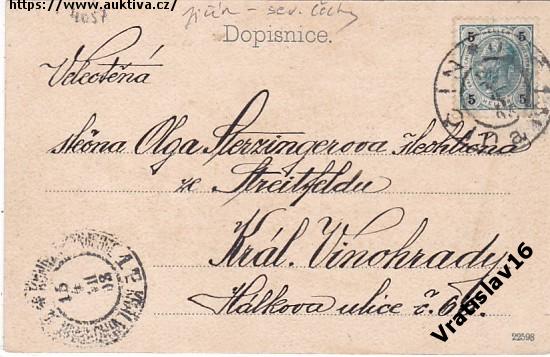 https://www.auktiva.cz/
4057
jičín - sev. Čechy
Dopisnice.
5 5
5 5
JIČÍN
Velectěná
slečna Olga Sterzingerova
ze Streitfeldu
Král. Vinohrady
Hálkova ulice č.
22598
Vratislav16